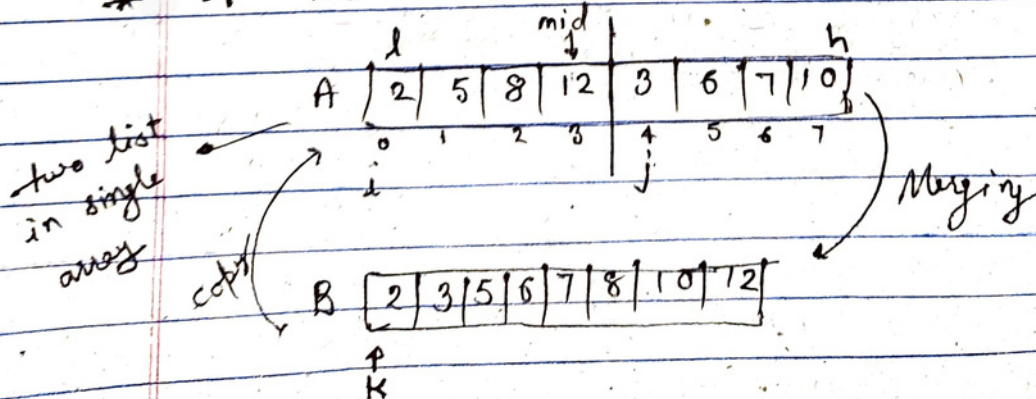 l mid h
A 2 5 8 12 3 6 7 10
0 1 2 3 4 5 6 7
i j
two list
in single
array
Merging
copy
B 2 3 5 6 7 8 10 12
K